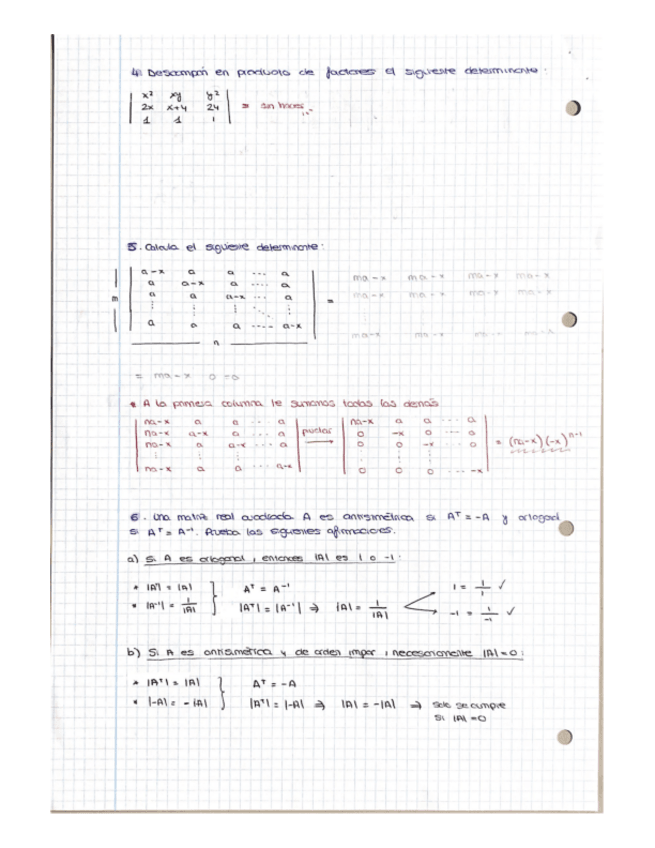 4. Descompón en producto de factores el siguiente determinante:
| x² xy y² |
| 2x x+y 2y | = sin hacer
| 1 1 1 |
5. Calcula el siguiente determinante:
| a-x a a ... a |
| a a-x a ... a |
| a a a-x ... a | =
| a a a ... a-x |
n
= ma-x 0 -0
* A la primera columna le sumamos todas las demás
| na-x a a ... a | | na-x a a ... a |
| na-x a-x a ... a | pivotar | 0 -x 0 ... 0 |
| na-x a a-x ... a | → | 0 0 -x ... 0 | = (na-x)(-x)ⁿ⁻¹
| na-x a a ... a-x | | 0 0 0 ... -x |
6. Una matriz real cuadrada A es antisimétrica si Aᵀ = -A y ortogonal
si Aᵀ = A⁻¹. Prueba las siguientes afirmaciones.
a) Si A es ortogonal, entonces |A| es 1 o -1:
* |Aᵀ| = |A| } Aᵀ = A⁻¹ 1 = 1/1 ✓
* |A⁻¹| = 1/|A| |Aᵀ| = |A⁻¹| ⇒ |A| = 1/|A| -1 = 1/-1 ✓
b) Si A es antisimétrica y de orden impar, necesariamente |A|=0:
* |Aᵀ| = |A| } Aᵀ = -A
* |-A| = -|A| |Aᵀ| = |-A| ⇒ |A| = -|A| ⇒ Solo se cumple
si |A| = 0